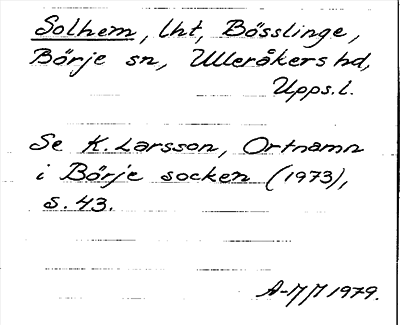 Solhem, lht, Bösslinge,
Börje sn, Ulleråkers hd,
Upps.l.
Se K. Larsson, Ortnamn
i Börje socken (1973),
s. 43.
A-MM 1979.